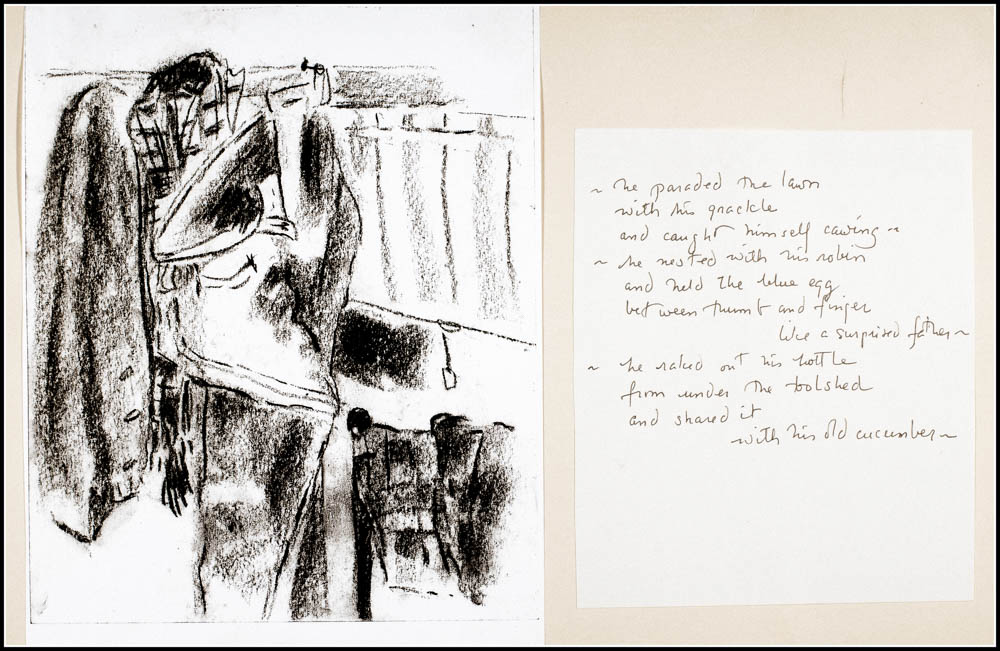 ~ he paraded the lawn
with his grackle
and caught himself cawing ~
~ he nested with his robin
and held the blue egg
between thumb and finger
like a surprised father ~
~ he raked out his bottle
from under the toolshed
and shared it
with his old cucumber ~